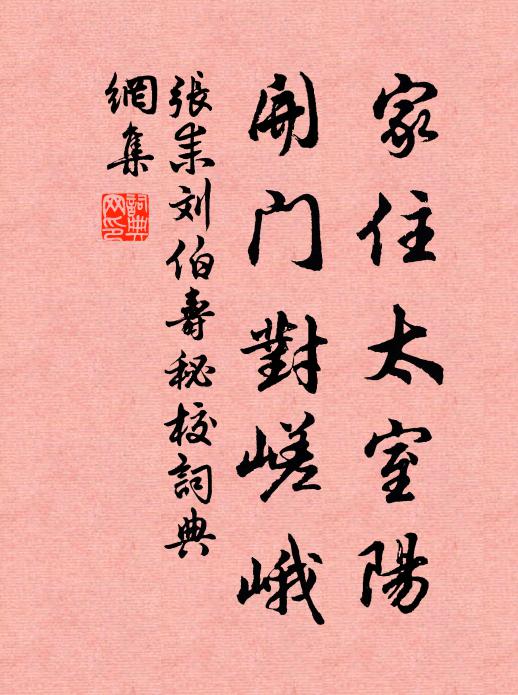 家住太室陽
開門對嵯峨
張耒刘伯壽秘校詞典
網集
詞典網印